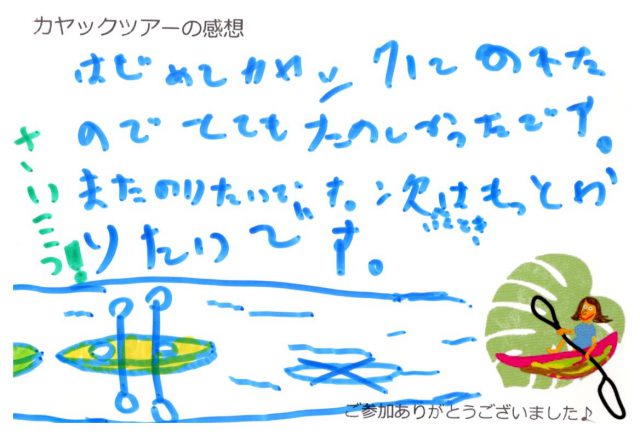 カヤックツアーの感想
はじめてカヤックにのれた
のでとてもたのしかったです。
またのりたいです。次はもっとの
りたいです。
ご参加ありがとうございました♪